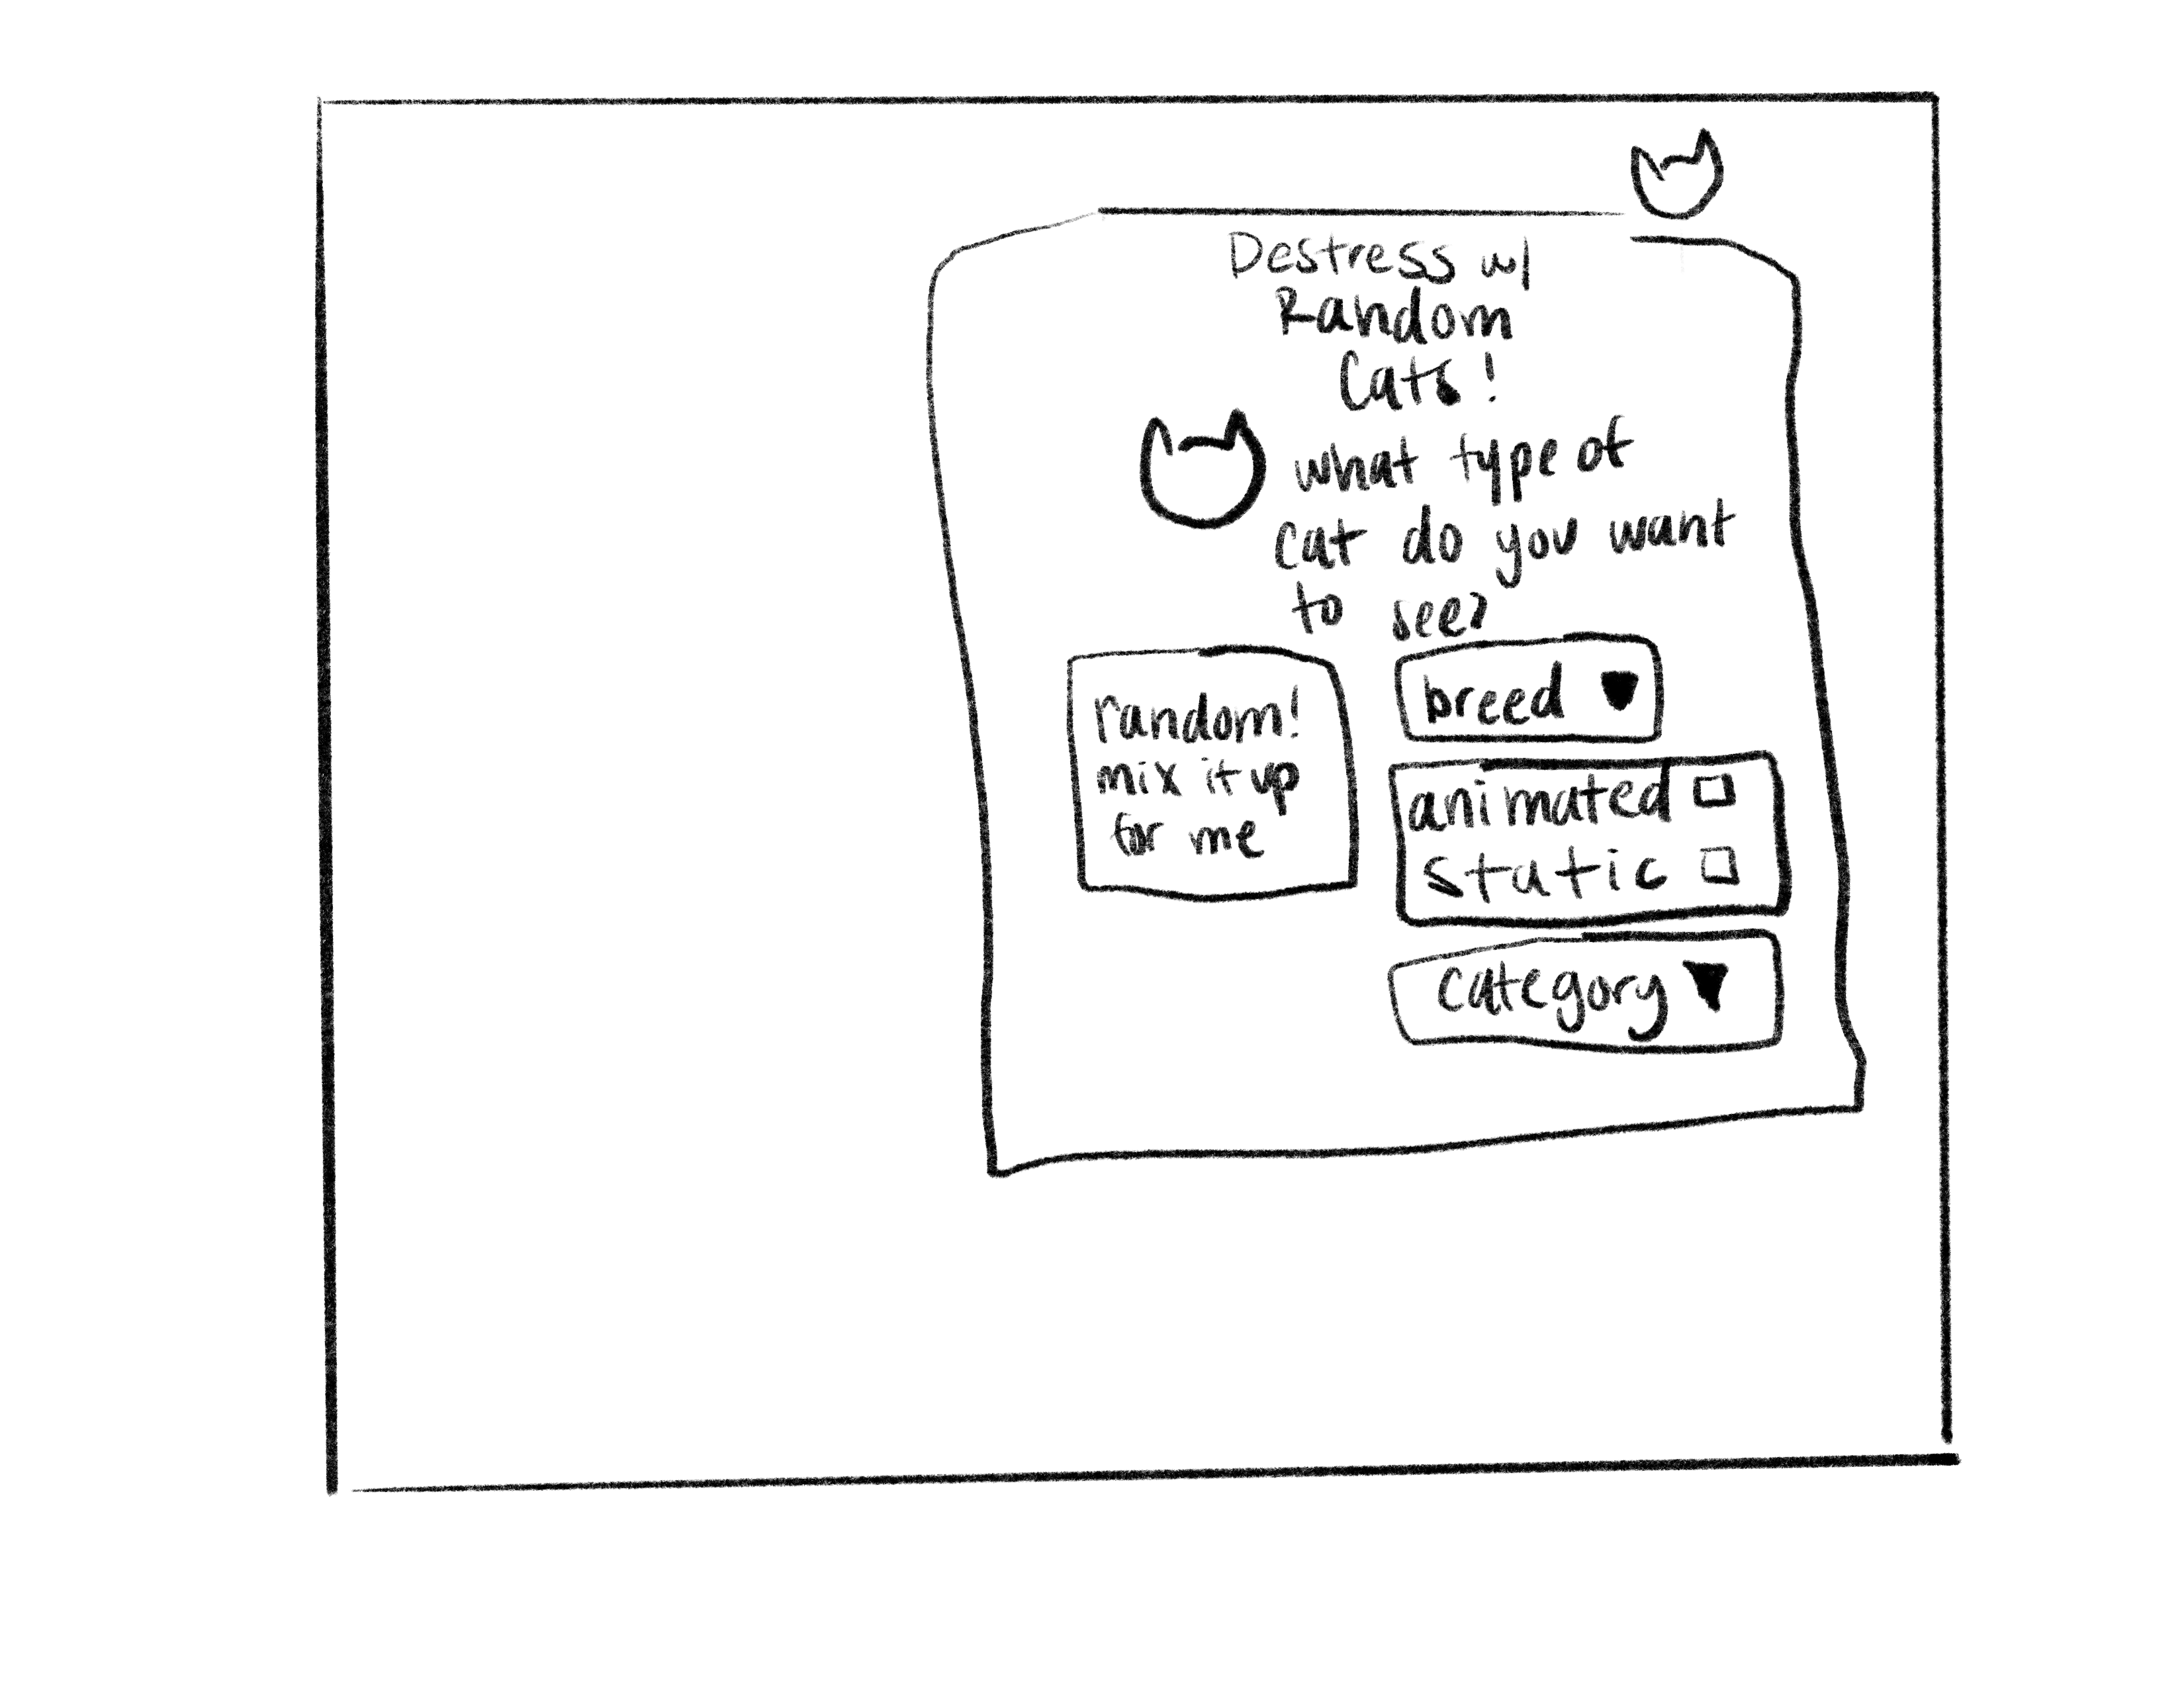 Destress w/
Random
Cats!
what type of
cat do you want
to see?
random!
mix it up
for me
breed
animated
static
category